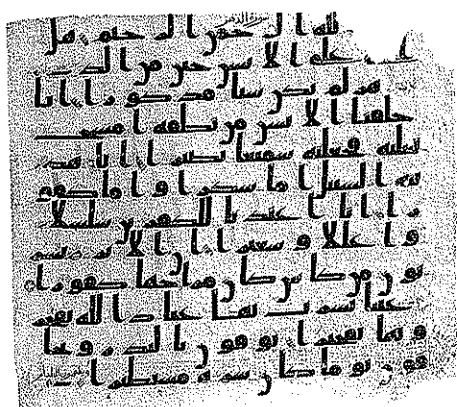 لله الرحمن الرحيم هل
على الانسن حين من الد
لم يكن شيا مذكورا انا
خلقنا الانسن من نطفه امشج
نبتليه فجعلنه سميعا بصيرا انا هد
ينه السبيل اما شكرا و اما كفو
را انا اعتدنا للكفرين سلسلا
و اغللا و سعيرا ان الا يشر
بون من كاس كان مزاجها كفورا
عينا يشرب بها عباد الله يفجر
ونها تفجيرا يوفون بالنذر و يخا
فون يوما كان شره مستطيرا